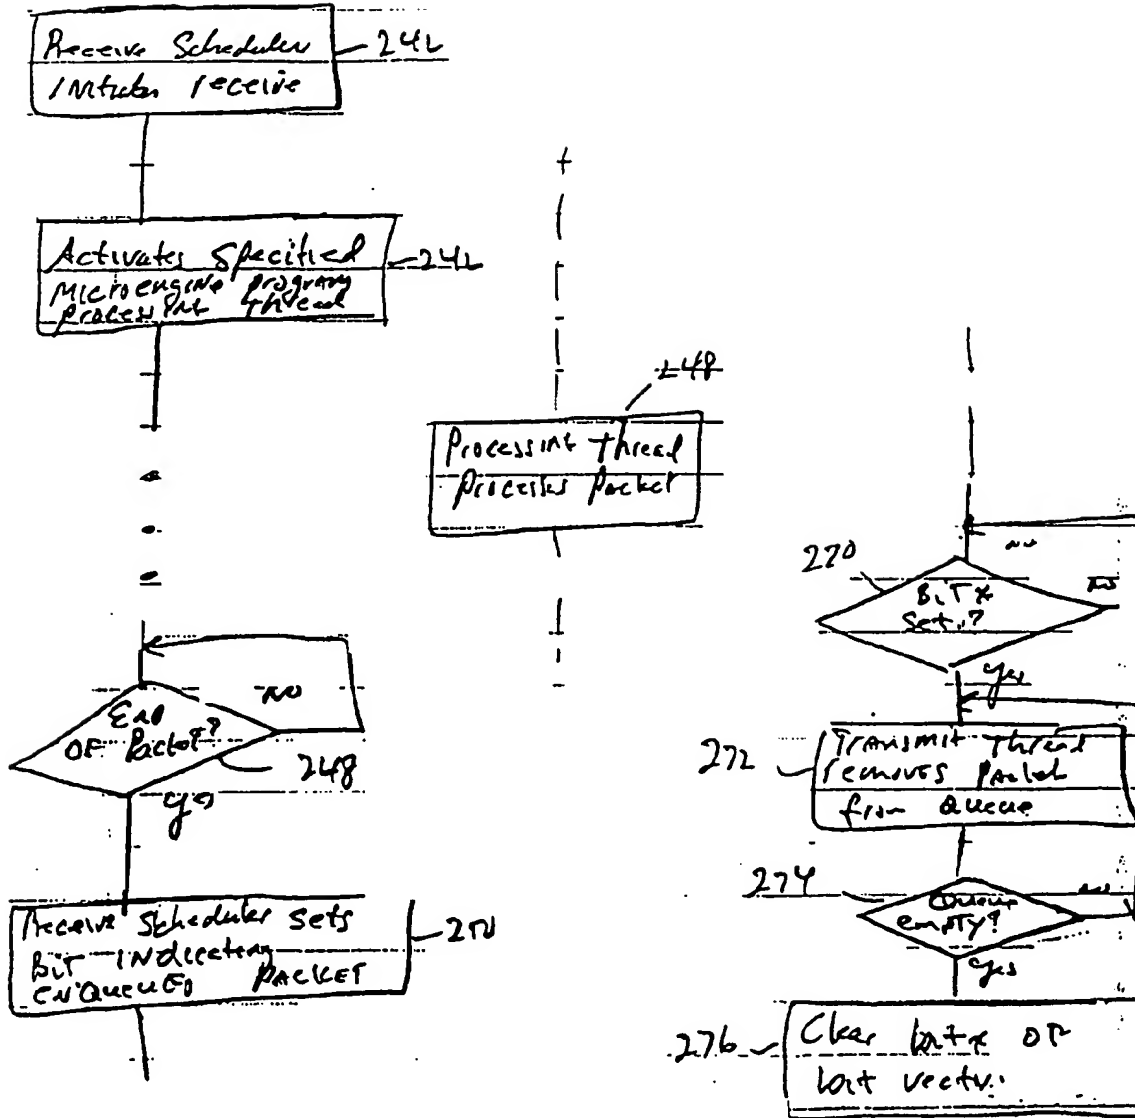 Receive Scheduler
Initiates receive
242
Activates Specified
Microengine program
processing thread
242
248
Processing thread
processes packet
End
OF Packet?
NO
248
yes
Receive Scheduler sets
Bit indicating
ENQUEUED PACKET
270
Bit x
Set?
NO
NO
yes
272
Transmit thread
removes packet
from Queue
274
Queue
empty?
NO
yes
276
Clear bit x OF
bit vector